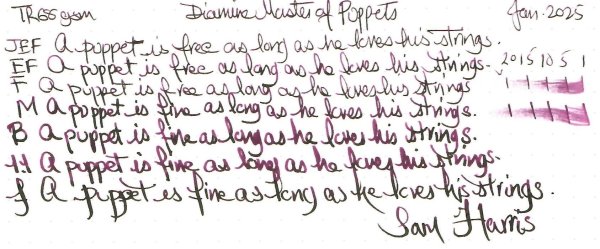 TR68gsm Diamine Master of Puppets Jan. 2025
JEF A puppet is free as long as he loves his strings.
EF A puppet is free as long as he loves his strings. 20 15 10 5 1
F A puppet is free as long as he loves his strings
M A puppet is fine as long as he loves his strings.
B A puppet is fine as long as he loves his strings.
1.1 A puppet is fine as long as he loves his strings.
f A puppet is fine as long as he loves his strings.
Sam Harris